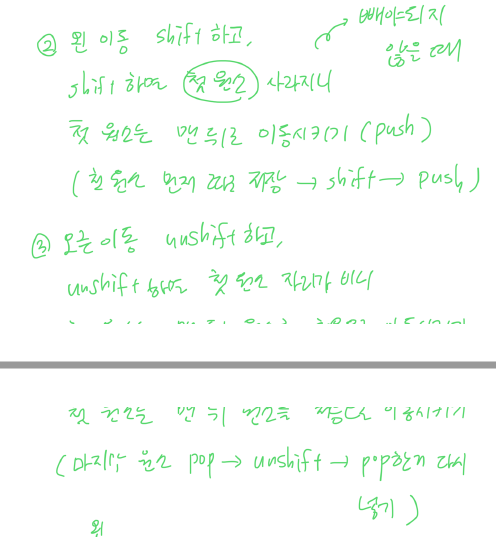 ② 왼 이동 shift 하고,
빼야되지
않을 때
shift 하면 첫 원소 사라지니
첫 원소는 맨 뒤로 이동시키기 (push)
(첫 원소 먼저 따로 저장 → shift → push)
③ 오른 이동 unshift 하고,
unshift 하면 첫 원소 자리가 비니
첫 원소는 맨 뒤 원소를 이동시키기
(마지막 원소 pop → unshift → pop한거 다시
넣기)